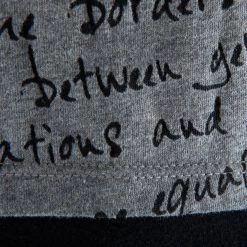 he Borders
between gen
ations and
equa